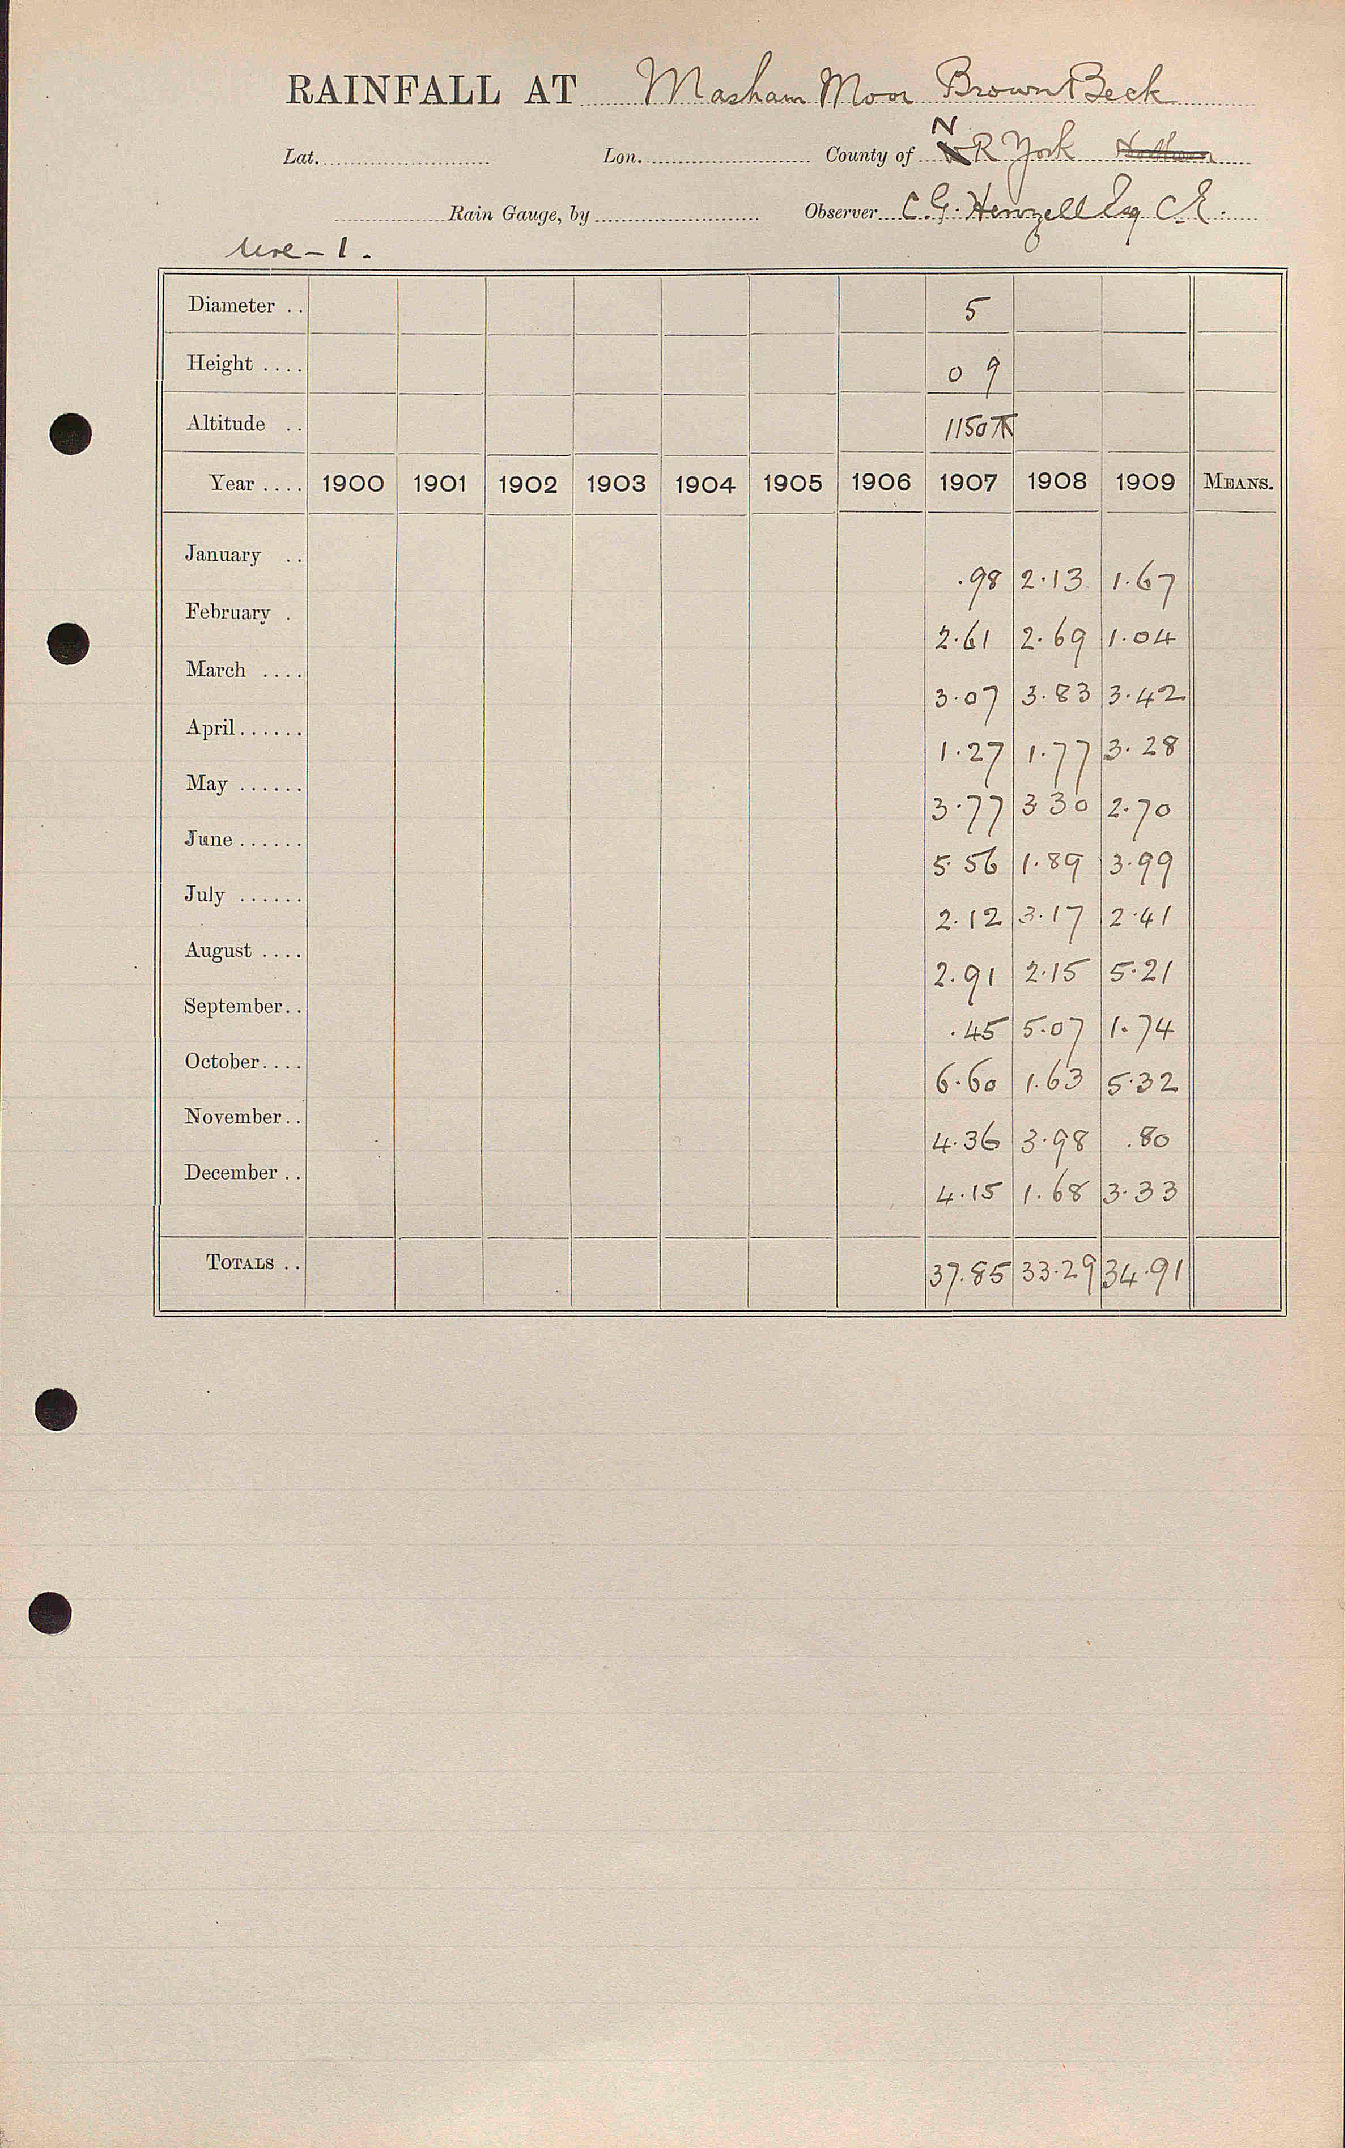 RAINFALL AT Masham Moor Brown Beck
Lat. Lon. County of N R York
Rain Gauge, by Observer C. G. Henzell Esq C.E.
Ure - 1.
Diameter .. 5
Height .... 0 9
Altitude .. 1150
Year .... 1900 1901 1902 1903 1904 1905 1906 1907 1908 1909 MEANS.
January .. .98 2.13 1.67
February . 2.61 2.69 1.04
March .... 3.07 3.83 3.42
April...... 1.27 1.77 3.28
May ...... 3.77 3 30 2.70
June...... 5.56 1.89 3.99
July ...... 2.12 3.17 2.41
August .... 2.91 2.15 5.21
September.. .45 5.07 1.74
October.... 6.60 1.63 5.32
November.. 4.36 3.98 .80
December .. 4.15 1.68 3.33
TOTALS .. 37.85 33.29 34.91